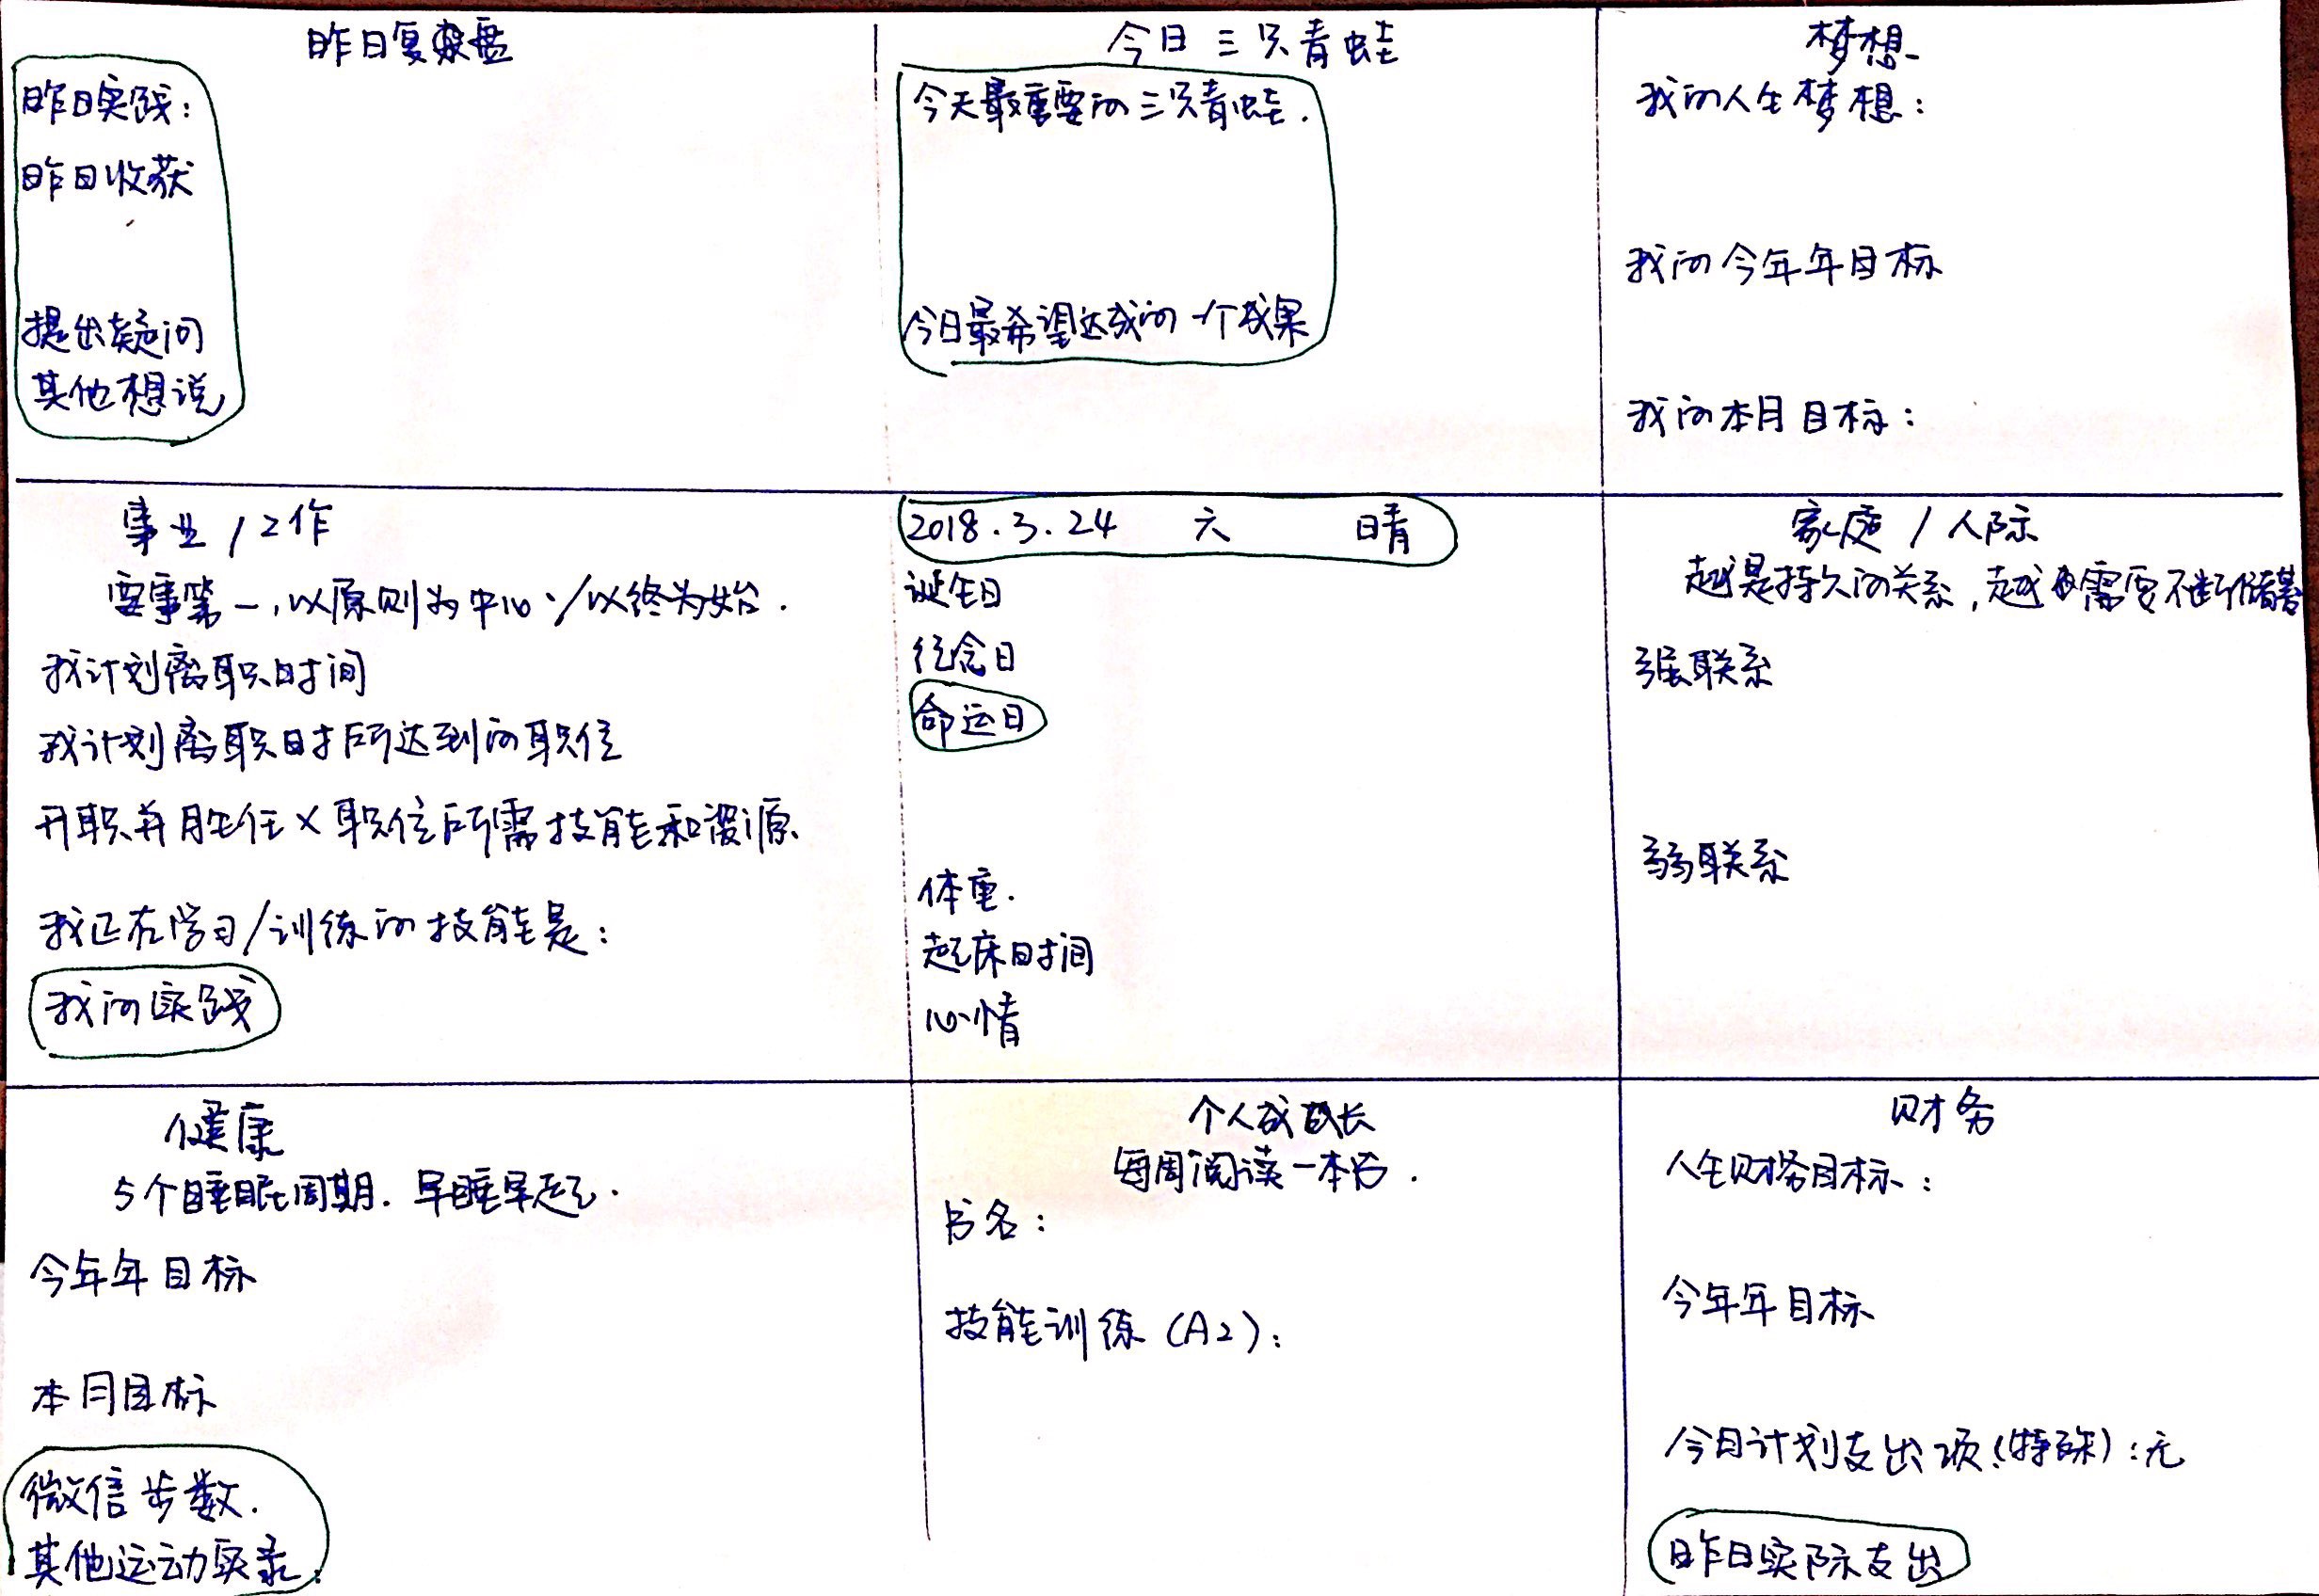 昨日复盘
昨日实践：
昨日收获
提出疑问
其他想说
今日三只青蛙
今天最重要的三只青蛙.
今日最希望达成的一个成果
梦想
我的人生梦想：
我的今年年目标
我的本月目标：
事业/工作
要事第一,以原则为中心/以终为始.
我计划离职时间
我计划离职时所达到的职位
升职并胜任×职位所需技能和资源
我正在学习/训练的技能是：
我的实践
2018.3.24 六 晴
诞生日
纪念日
命运日
体重.
起床时间
心情
家庭/人际
越是持久的关系,越需要不断储蓄
强联系
弱联系
健康
5个睡眠周期. 早睡早起.
今年年目标
本月目标
微信步数.
其他运动实录.
个人成长
每周阅读一本书.
书名：
技能训练(A2)：
财务
人生财务目标：
今年年目标
今日计划支出项(特殊)：无
昨日实际支出